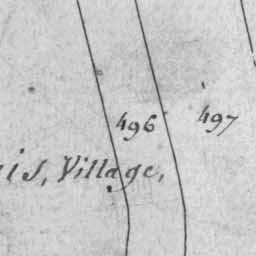 496
497
is, Village,